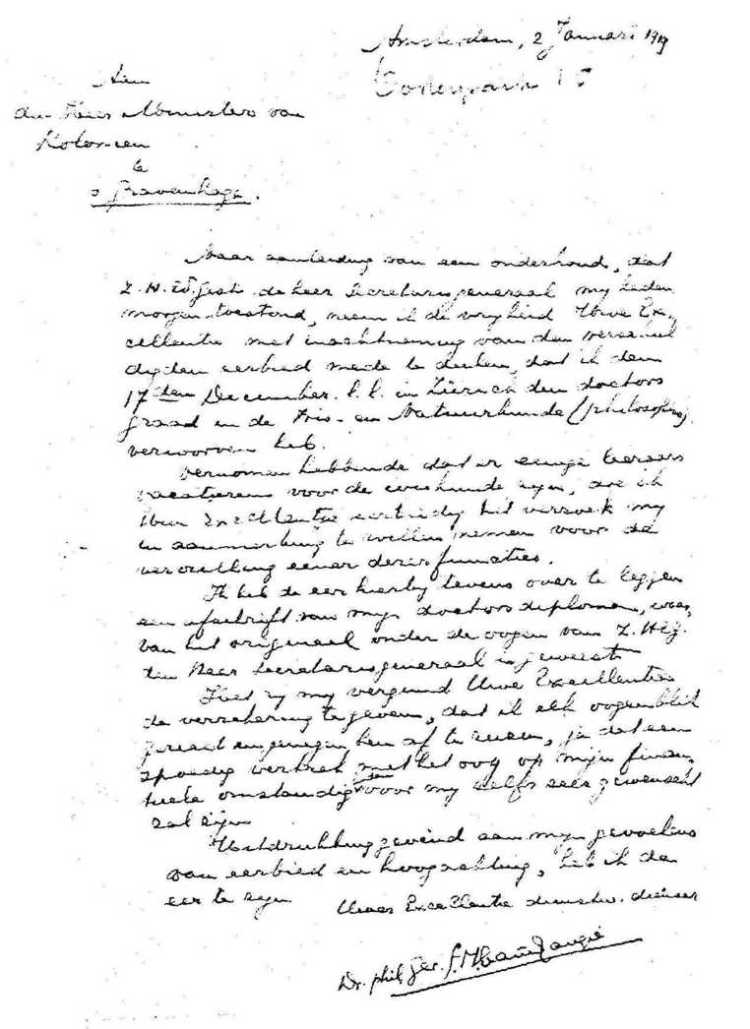 Amsterdam, 2 Januari 1919
Oosterpark 15
Aan
den Heer Minister van
Koloniën
te
's Gravenhage.
Naar aanleiding van een onderhoud, dat
Z.H.W.Gestr. de heer Secretarisgeneraal my heden
morgen toestond, neem ik de vryheid Uwe Ex-
cellentie met inachtneming van den verschul
digden eerbied mede te deelen, dat ik den
17den December l.l. in Zürich den doctors
graad in de Wis- en Natuurkunde (philosophie)
verworven heb.
Vernomen hebbende dat er eenige leeraars
vacatures voor de wiskunde zyn, doe ik
Uwe Excellentie eerbiedig het verzoek my
in aanmerking te willen nemen voor de
vervulling eener dezer functies.
Ik heb de eer hierby tevens over te leggen
een afschrift van myn doctorsdiploma, waar
van het origineel onder de oogen van Z.H.E.G.
den Heer Secretarisgeneraal is geweest.
Het zy my vergund Uwe Excellentie
de verzekering te geven, dat ik elk oogenblik
gereed en genegen ben af te reizen, ja dat een
spoedig vertrek met het oog op mijn finan-
tieele omstandigheden voor my zelfs zeer gewenscht
zal zijn
Uitdrukking gevend aan myn gevoelens
van eerbied en hoogachting, heb ik de
eer te zyn
Uwer Excellentie dienstw. dienaar
Dr. phil Ger.